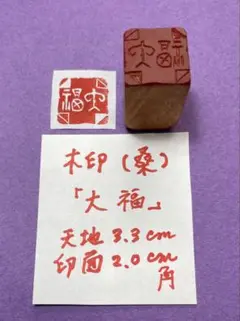 福大
木印(桑)
「大福」
天地 3.3cm
印面 2.0cm
角